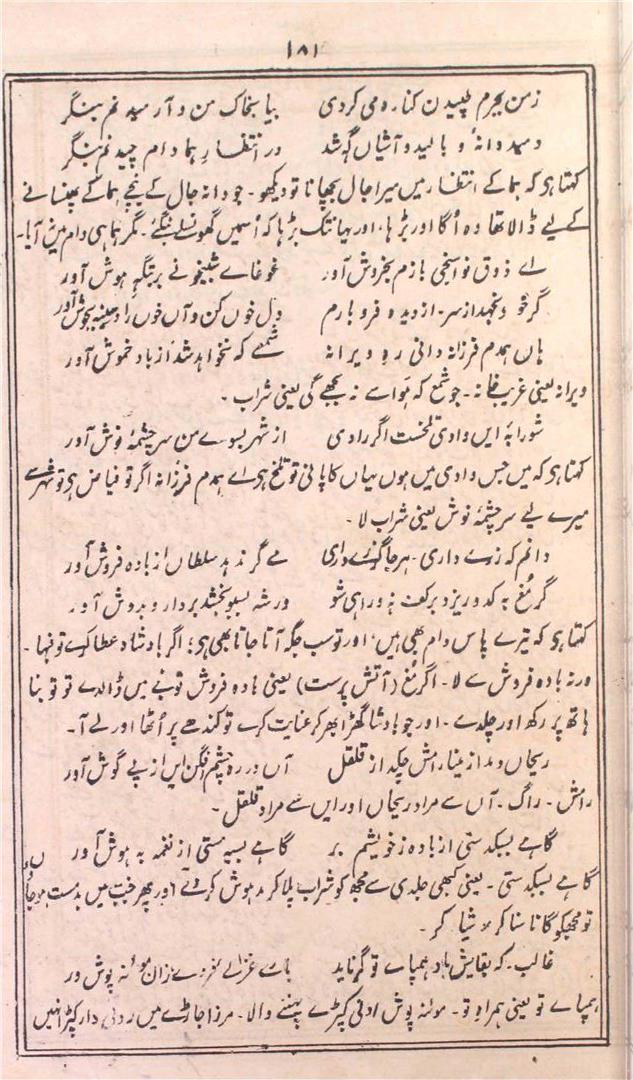 ۱۸۱
زمن بجرم تپیدن کناره می کردی بیا بخاک من و آرمیدنم بنگر
دمید دانہ و بالید و آشیاں گہ شد در انتظار ہما دام چیدنم بنگر
کہتا ہی کہ ہما کے انتظار میں میرا جال بچھانا تو دیکھو۔ جو دانہ جال کے نیچے ہما کے پھنسانے
کے لیے ڈالا تھا وہ اُگا اور بڑھا، اور یہانتک بڑھا کہ اُسمیں گھونسلے بنگئے۔ مگر ہما ہی دام میں نہ آیا۔
اے ذوق نواسنجی بازم بخروش آور غوغاے شبیخونے بر بنگہ ہوش آور
گر خود نجہد از سر۔ از دیدہ فرو بارم دل خوں کن و آں خوں را در سینہ بجوش آور
ہاں ہمدم فرزانہ دانی رہ ویرانہ شمعے کہ نخواہد شد از باد خموش آور
ویرانہ یعنی غریب خانہ۔ جو شمع کہ ہوا سے نہ بجھے گی یعنی شراب۔
شورابہ ایں وادی تلخست اگر رادی از شہر بسوے من سرچشمہ نوش آور
کہتا ہی کہ میں جس وادی میں ہوں یہاں کا پانی تو تلخ ہی اے ہمدم فرزانہ اگر تو فیاض ہی تو شہر سے
میرے لیے سرچشمہ نوش یعنی شراب لا۔
دانم کہ زرے داری۔ ہر جا گذرے داری مے گر ندہد سلطاں از بادہ فروش آور
گر مُغ بہ کدو ریزد بر کف نہ و راہی شو ور شہ بسبو بخشد بردار و بدوش آور
کہتا ہی کہ تیرے پاس دام بھی ہیں، اور تو سب جگہ آتا جاتا بھی ہی؛ اگر بادشاہ عطا کرے تو فبہا۔
ورنہ بادہ فروش سے لا۔ اگر مُغ (آتش پرست) یعنی بادہ فروش تونبے میں ڈالدے تو تونبا
ہاتھ پر رکھ اور چلدے۔ اور جو بادشا گھڑا بھر کر عنایت کرے تو کندھے پر اُٹھا اور لے آ۔
ریحاں دمد از مینا۔ رامش چکد از قلقل آں در رہ چشم افگن ایں از پے گوش آور
رامش۔ راگ۔ آں سے مراد ریحاں اور ایں سے مراد قلقل۔
گاہے بسبکدستی از بادہ ز خویشم بر گاہے بسیہ مستی از نغمہ بہ ہوش آور
گاہے بسبکدستی۔ یعنی کبھی جلدی سے مجھکو شراب پلا کر مدہوش کر دے اور پھر جب میں بدمست ہو جاؤں
تو مجھکو گانا سنا کر ہشیار کر۔
غالب۔ کہ بقایش باد ہمپاے تو گر ناید بارے غزلے فردے زان موئنہ پوش آور
ہمپاے تو یعنی ہمراہ تو۔ موئنہ پوش ادنی کپڑے پہننے والا۔ مرزا جاڑے میں روئی دار کپڑا نہیں